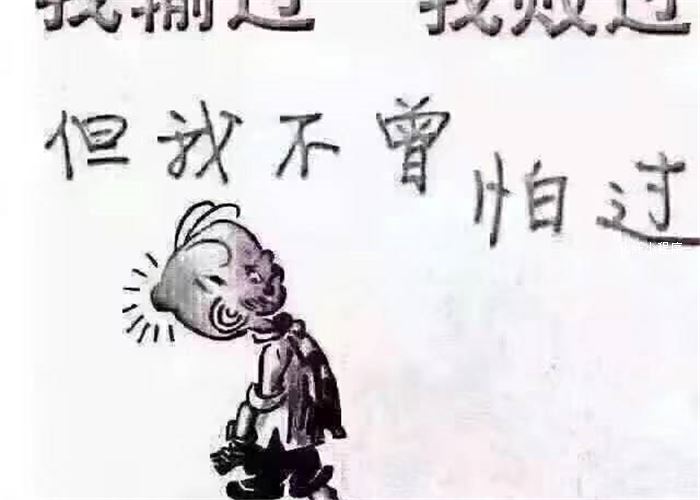 我输过 我败过
但我不曾
怕过